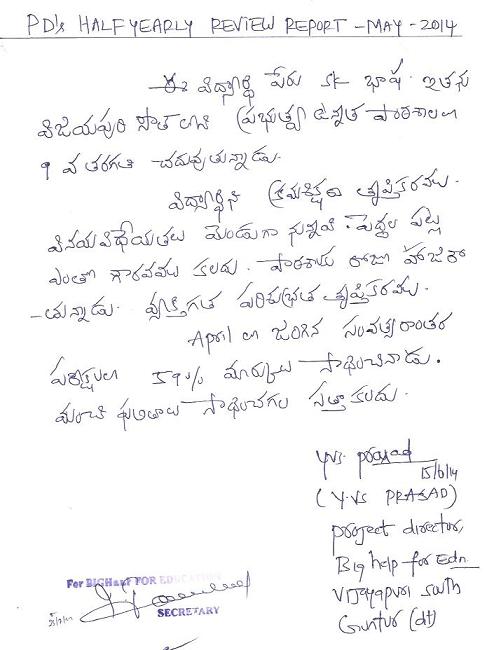 PD's HALF YEARLY REVIEW REPORT - MAY - 2014
విద్యార్థి పేరు SK భాష. ఇతను
విజయపురి సౌత్ లోని ప్రభుత్వ ఉన్నత పాఠశాలలో
9 వ తరగతి చదువుతున్నాడు.
విద్యార్థిని క్రమశిక్షణ తృప్తికరము.
వినయవిధేయతలు మెండుగా నున్నవి. పెద్దల పట్ల
ఎంతో గౌరవము కలదు. పాఠశాలకు రోజూ హాజరౌ
-తున్నాడు. వ్యక్తిగత పరిశుభ్రత తృప్తికరము.
April లో జరిగిన సంవత్సరాంతర
పరీక్షలలో 59% మార్కులు సాధించినాడు.
మంచి ఫలితాలు సాధించగల సత్తా కలదు.
yvs. prasad
15/6/14
(Y.VS PRASAD)
project director,
Big help for Edn.
Vijayapuri South
Guntur (dt)
For BIGHELP FOR EDUCATION
SECRETARY